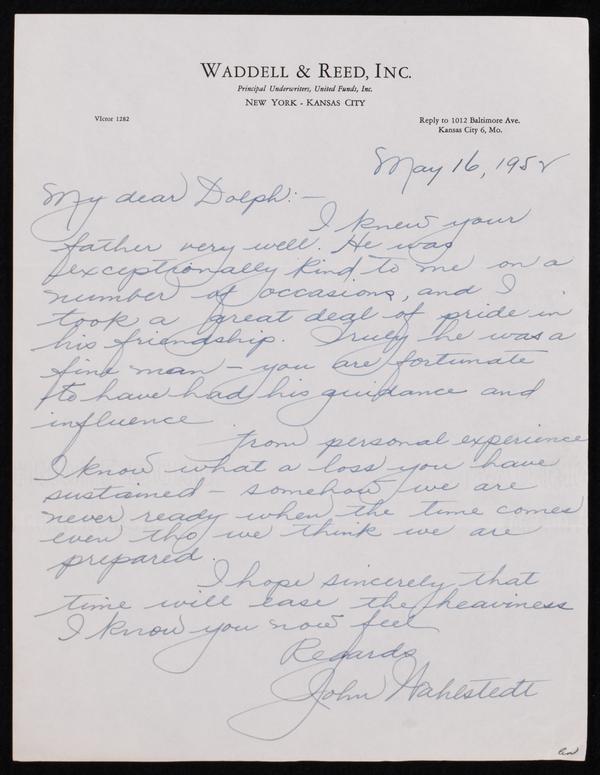 WADDELL & REED, INC.
Principal Underwriters, United Funds, Inc.
NEW YORK - KANSAS CITY
VIctor 1282
Reply to 1012 Baltimore Ave.
Kansas City 6, Mo.
May 16, 1952
My dear Dolph: —
I knew your
father very well. He was
exceptionally kind to me on a
number of occasions, and I
took a great deal of pride in
his friendship. Truly he was a
fine man - you are fortunate
to have had his guidance and
influence.
From personal experience
I know what a loss you have
sustained - somehow we are
never ready when the time comes
even tho we think we are
prepared.
I hope sincerely that
time will ease the heaviness
I know you now feel
Regards
John Wahlstedt